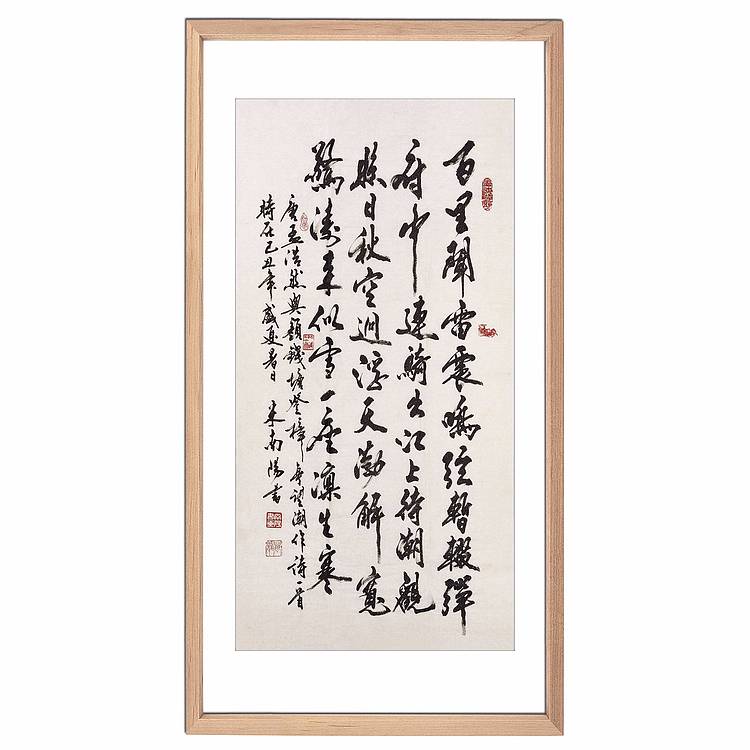 百里聞雷震鳴弦暫輟彈
府中連騎出江上待潮觀
照日秋空迥浮天渤解寬
驚濤来似雪一座凛生寒
唐孟浩然與顔錢塘登樟亭望潮作詩一首
時在己丑年盛夏暑日 米南陽書